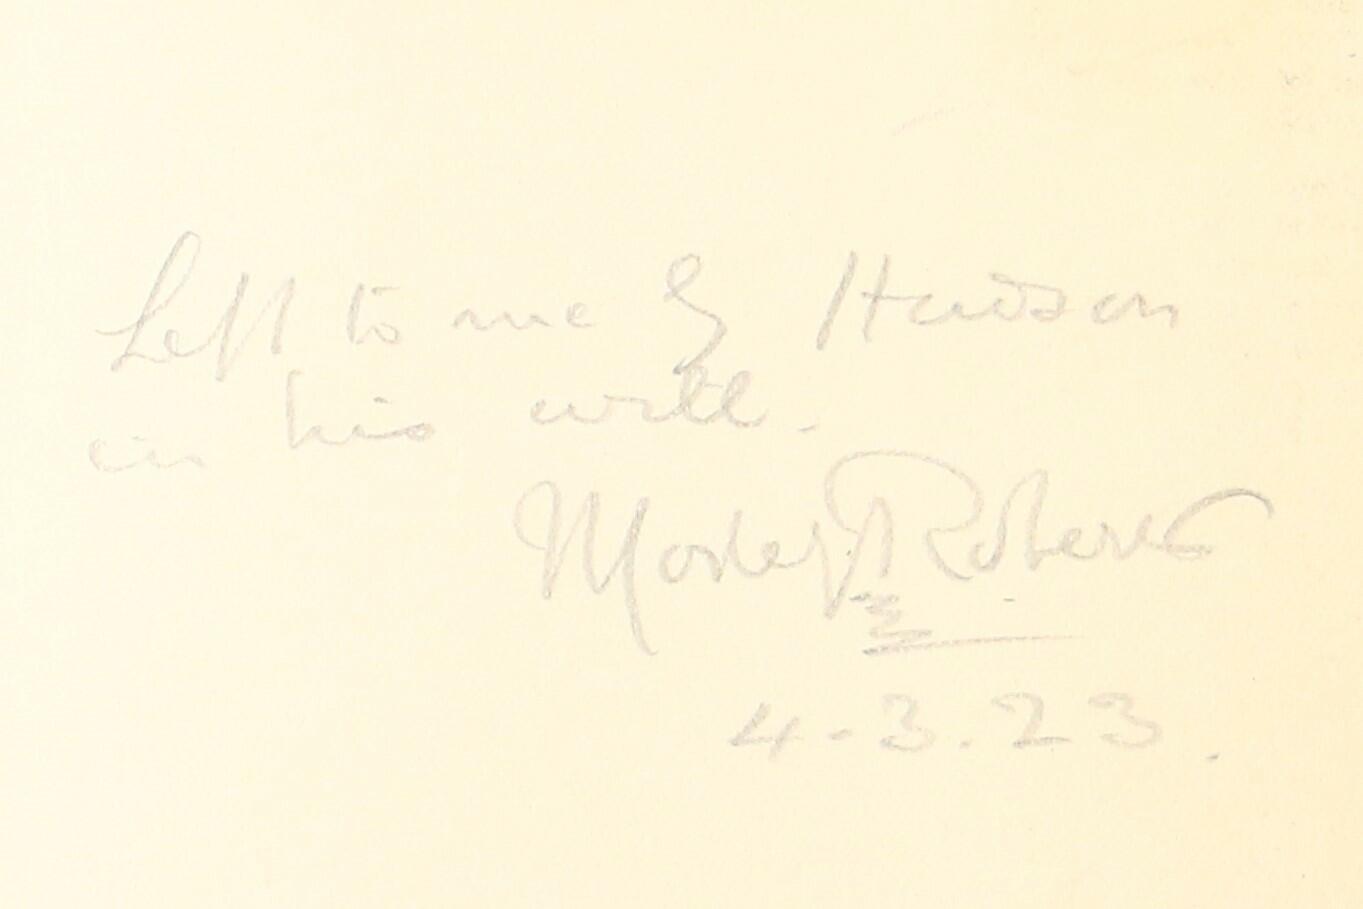 Left to me by Hudson
in his will.
Morley Roberts
4-3.23.